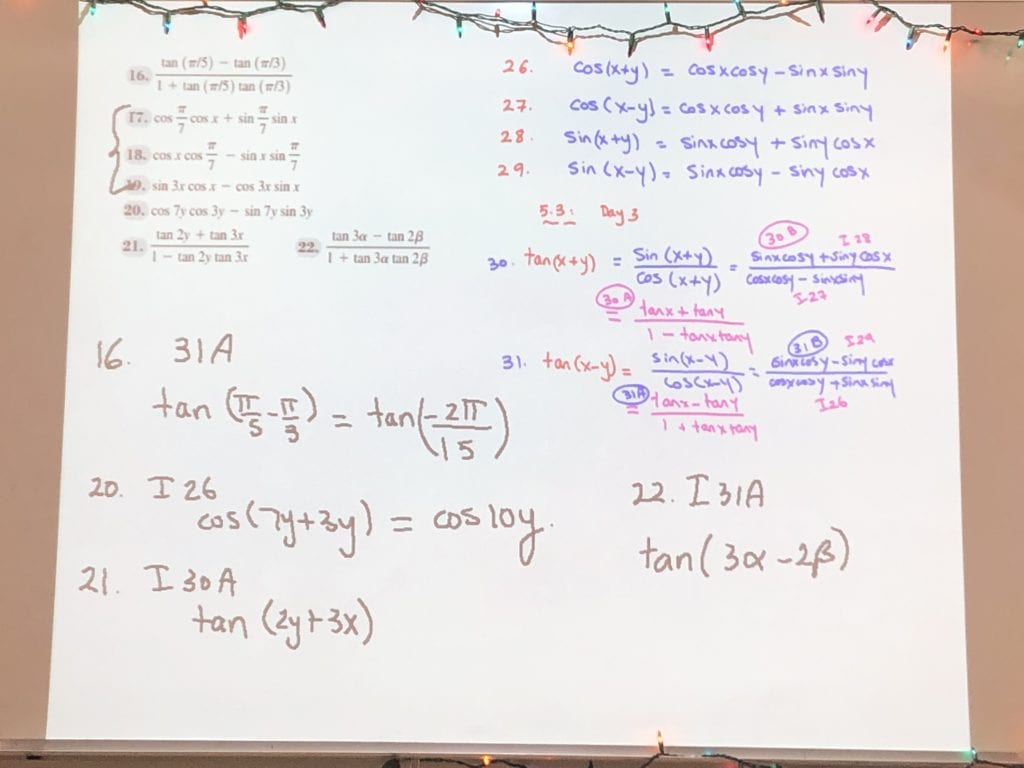 16. (tan (π/5) − tan (π/3)) / (1 + tan (π/5) tan (π/3))
17. cos π/7 cos x + sin π/7 sin x
18. cos x cos π/7 − sin x sin π/7
19. sin 3x cos x − cos 3x sin x
20. cos 7y cos 3y − sin 7y sin 3y
21. (tan 2y + tan 3x) / (1 − tan 2y tan 3x) 22. (tan 3α − tan 2β) / (1 + tan 3α tan 2β)
26. cos(x+y) = cosxcosy − sinxsiny
27. cos(x−y) = cosxcosy + sinxsiny
28. sin(x+y) = sinxcosy + sinycosx
29. sin(x−y) = sinxcosy − sinycosx
5.3: Day 3
30B I28
30. tan(x+y) = sin(x+y) / cos(x+y) = (sinxcosy + sinycosx) / (cosxcosy − sinxsiny)
I27
30A = (tanx + tany) / (1 − tanxtany)
31B I29
31. tan(x−y) = sin(x−y) / cos(x−y) = (sinxcosy − sinycosx) / (cosxcosy + sinxsiny)
I26
31A = (tanx − tany) / (1 + tanxtany)
16. 31A
tan(π/5 − π/3) = tan(−2π/15)
20. I26
cos(7y+3y) = cos10y.
21. I30A
tan(2y+3x)
22. I31A
tan(3α−2β)